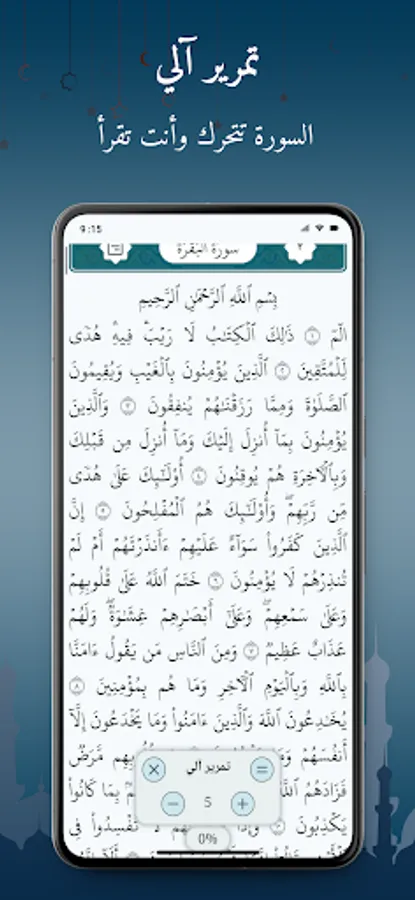 تمرير آلي
السورة تتحرك وأنت تقرأ
9:15
سورة البقرة
٢
بِسْمِ ٱللَّهِ ٱلرَّحْمَٰنِ ٱلرَّحِيمِ
الٓمٓ ١ ذَٰلِكَ ٱلْكِتَٰبُ لَا رَيْبَۛ فِيهِۛ هُدًى
لِّلْمُتَّقِينَ ٢ ٱلَّذِينَ يُؤْمِنُونَ بِٱلْغَيْبِ وَيُقِيمُونَ
ٱلصَّلَوٰةَ وَمِمَّا رَزَقْنَٰهُمْ يُنفِقُونَ ٣ وَٱلَّذِينَ
يُؤْمِنُونَ بِمَآ أُنزِلَ إِلَيْكَ وَمَآ أُنزِلَ مِن قَبْلِكَ
وَبِٱلْءَاخِرَةِ هُمْ يُوقِنُونَ ٤ أُو۟لَٰٓئِكَ عَلَىٰ هُدًى
مِّن رَّبِّهِمْۖ وَأُو۟لَٰٓئِكَ هُمُ ٱلْمُفْلِحُونَ ٥ إِنَّ
ٱلَّذِينَ كَفَرُوا۟ سَوَآءٌ عَلَيْهِمْ ءَأَنذَرْتَهُمْ أَمْ لَمْ
تُنذِرْهُمْ لَا يُؤْمِنُونَ ٦ خَتَمَ ٱللَّهُ عَلَىٰ قُلُوبِهِمْ
وَعَلَىٰ سَمْعِهِمْۖ وَعَلَىٰٓ أَبْصَٰرِهِمْ غِشَٰوَةٌۖ وَلَهُمْ
عَذَابٌ عَظِيمٌ ٧ وَمِنَ ٱلنَّاسِ مَن يَقُولُ ءَامَنَّا
بِٱللَّهِ وَبِٱلْيَوْمِ ٱلْءَاخِرِ وَمَا هُم بِمُؤْمِنِينَ ٨
يُخَٰدِعُونَ ٱللَّهَ وَٱلَّذِينَ ءَامَنُوا۟ وَمَا يَخْدَعُونَ إِلَّآ
أَنفُسَهُمْ قُلُوبِهِم مَّرَضٌ
فَزَادَهُمُ ٱللَّهُ بِمَا كَانُوا۟
يَكْذِبُونَ ١٠ وَإِذَا لَا تُفْسِدُوا۟ فِى
تمرير آلي
− 5 +
0%